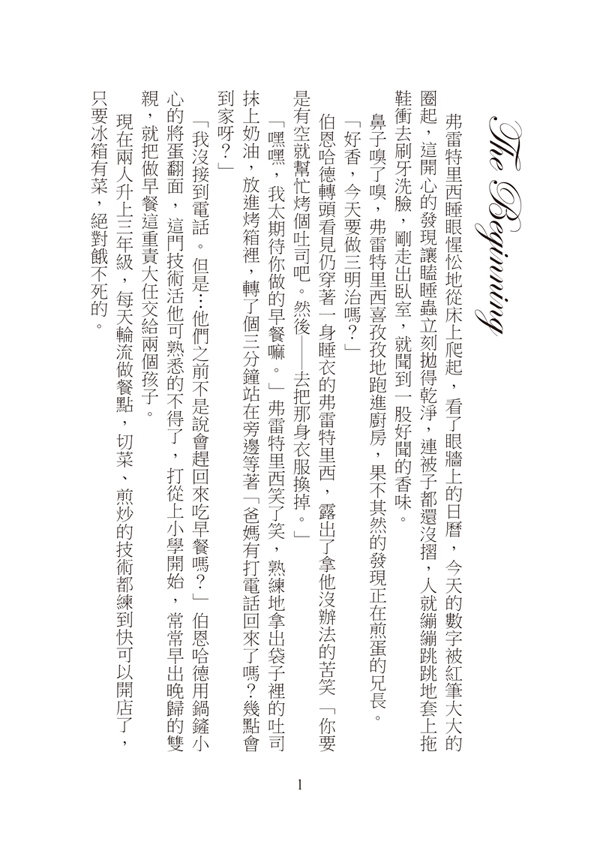 The Beginning
弗雷特里西睡眼惺忪地從床上爬起，看了眼牆上的日曆，今天的數字被紅筆大大的
圈起，這開心的發現讓瞌睡蟲立刻拋得乾淨，連被子都還沒摺，人就繃繃跳跳地套上拖
鞋衝去刷牙洗臉，剛走出臥室，就聞到一股好聞的香味。
鼻子嗅了嗅，弗雷特里西喜孜孜地跑進廚房，果不其然的發現正在煎蛋的兄長。
「好香，今天要做三明治嗎？」
伯恩哈德轉頭看見仍穿著一身睡衣的弗雷特里西，露出了拿他沒辦法的苦笑「你要
是有空就幫忙烤個吐司吧。然後——去把那身衣服換掉。」
「嘿嘿，我太期待你做的早餐嘛。」弗雷特里西笑了笑，熟練地拿出袋子裡的吐司
抹上奶油，放進烤箱裡，轉了個三分鐘站在旁邊等著「爸媽有打電話回來了嗎？幾點會
到家呀？」
「我沒接到電話。但是…他們之前不是說會趕回來吃早餐嗎？」伯恩哈德用鍋鏟小
心的將蛋翻面，這門技術活他可熟悉的不得了，打從上小學開始，常常早出晚歸的雙
親，就把做早餐這重責大任交給兩個孩子。
現在兩人升上三年級，每天輪流做餐點，切菜、煎炒的技術都練到快可以開店了，
只要冰箱有菜，絕對餓不死的。
1